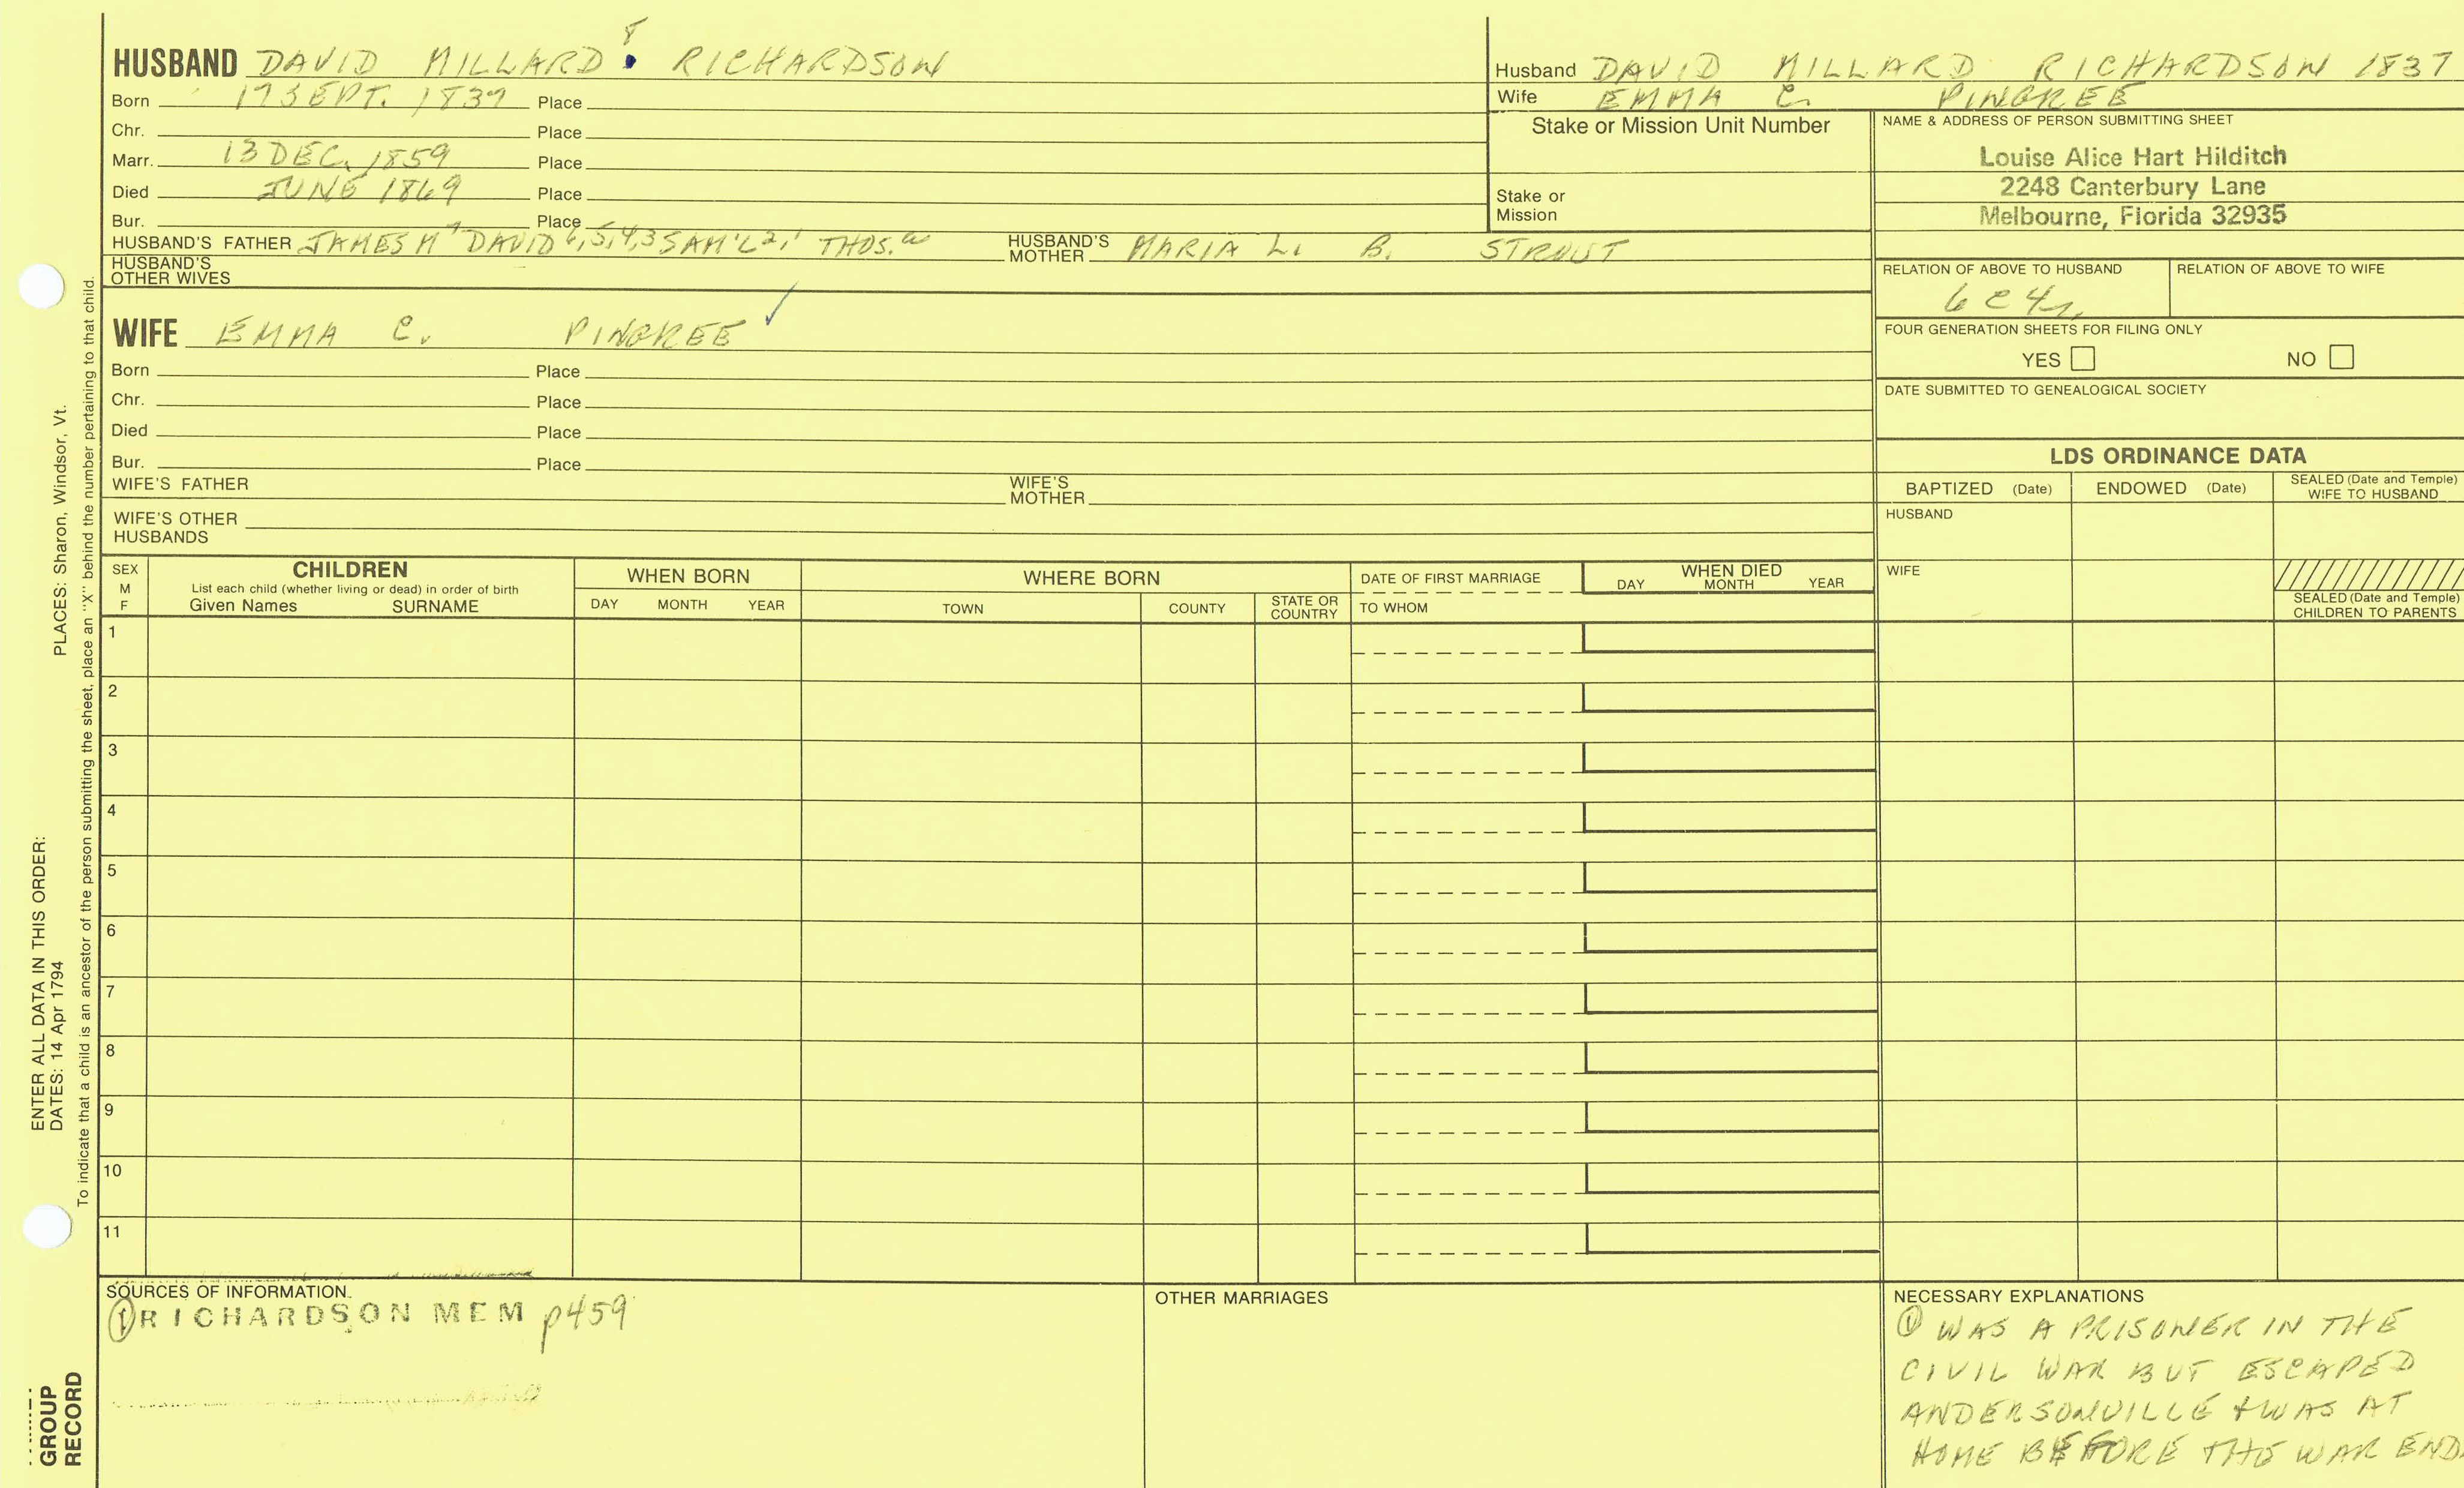 8
HUSBAND DAVID MILLARD RICHARDSON
Born 17 SEPT. 1837 Place
Chr. Place
Marr. 13 DEC. 1859 Place
Died JUNE 1869 Place
Bur. Place
HUSBAND'S FATHER JAMES M 7 DAVID 6,5,4,3 SAM'L 2,1 THOS. HUSBAND'S MOTHER MARIA L. B.
HUSBAND'S OTHER WIVES
WIFE EMMA C. PINGREE ✓
Born Place
Chr. Place
Died Place
Bur. Place
WIFE'S FATHER WIFE'S MOTHER
WIFE'S OTHER HUSBANDS
Husband DAVID MILLARD RICHARDSON 1837
Wife EMMA C. PINGREE
Stake or Mission Unit Number
Stake or
Mission
NAME & ADDRESS OF PERSON SUBMITTING SHEET
Louise Alice Hart Hilditch
2248 Canterbury Lane
Melbourne, Florida 32935
RELATION OF ABOVE TO HUSBAND RELATION OF ABOVE TO WIFE
6C4r
FOUR GENERATION SHEETS FOR FILING ONLY
YES NO
DATE SUBMITTED TO GENEALOGICAL SOCIETY
LDS ORDINANCE DATA
BAPTIZED (Date) ENDOWED (Date) SEALED (Date and Temple) WIFE TO HUSBAND
HUSBAND
WIFE
SEALED (Date and Temple)
CHILDREN TO PARENTS
SEX M F CHILDREN WHEN BORN WHERE BORN DATE OF FIRST MARRIAGE WHEN DIED
List each child (whether living or dead) in order of birth DAY MONTH YEAR
Given Names SURNAME DAY MONTH YEAR TOWN COUNTY STATE OR COUNTRY TO WHOM
1
2
3
4
5
6
7
8
9
10
11
SOURCES OF INFORMATION
① RICHARDSON MEM p459
OTHER MARRIAGES
NECESSARY EXPLANATIONS
① WAS A PRISONER IN THE
CIVIL WAR BUT ESCAPED
ANDERSONVILLE & WAS AT
HOME BEFORE THE WAR END
ENTER ALL DATA IN THIS ORDER:
DATES: 14 Apr 1794 PLACES: Sharon, Windsor, Vt.
To indicate that a child is an ancestor of the person submitting the sheet, place an "X" behind the number pertaining to that child.
GROUP
RECORD